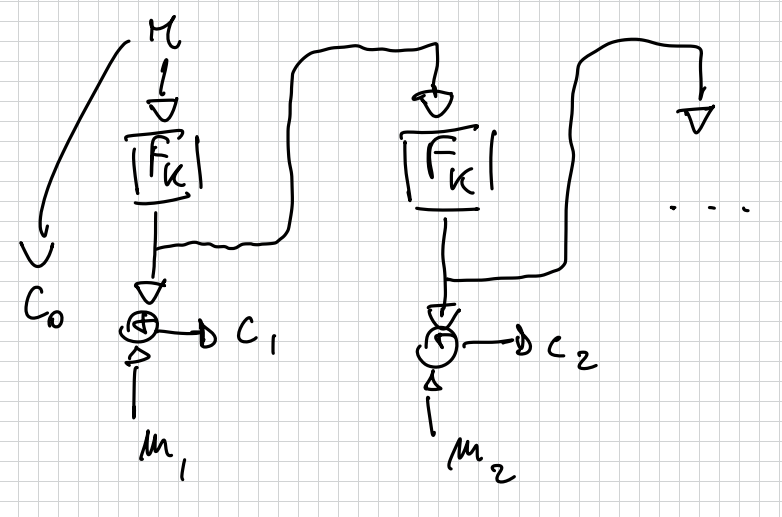 r
F_K F_K
. . .
C_0
+ C_1 + C_2
m_1 m_2